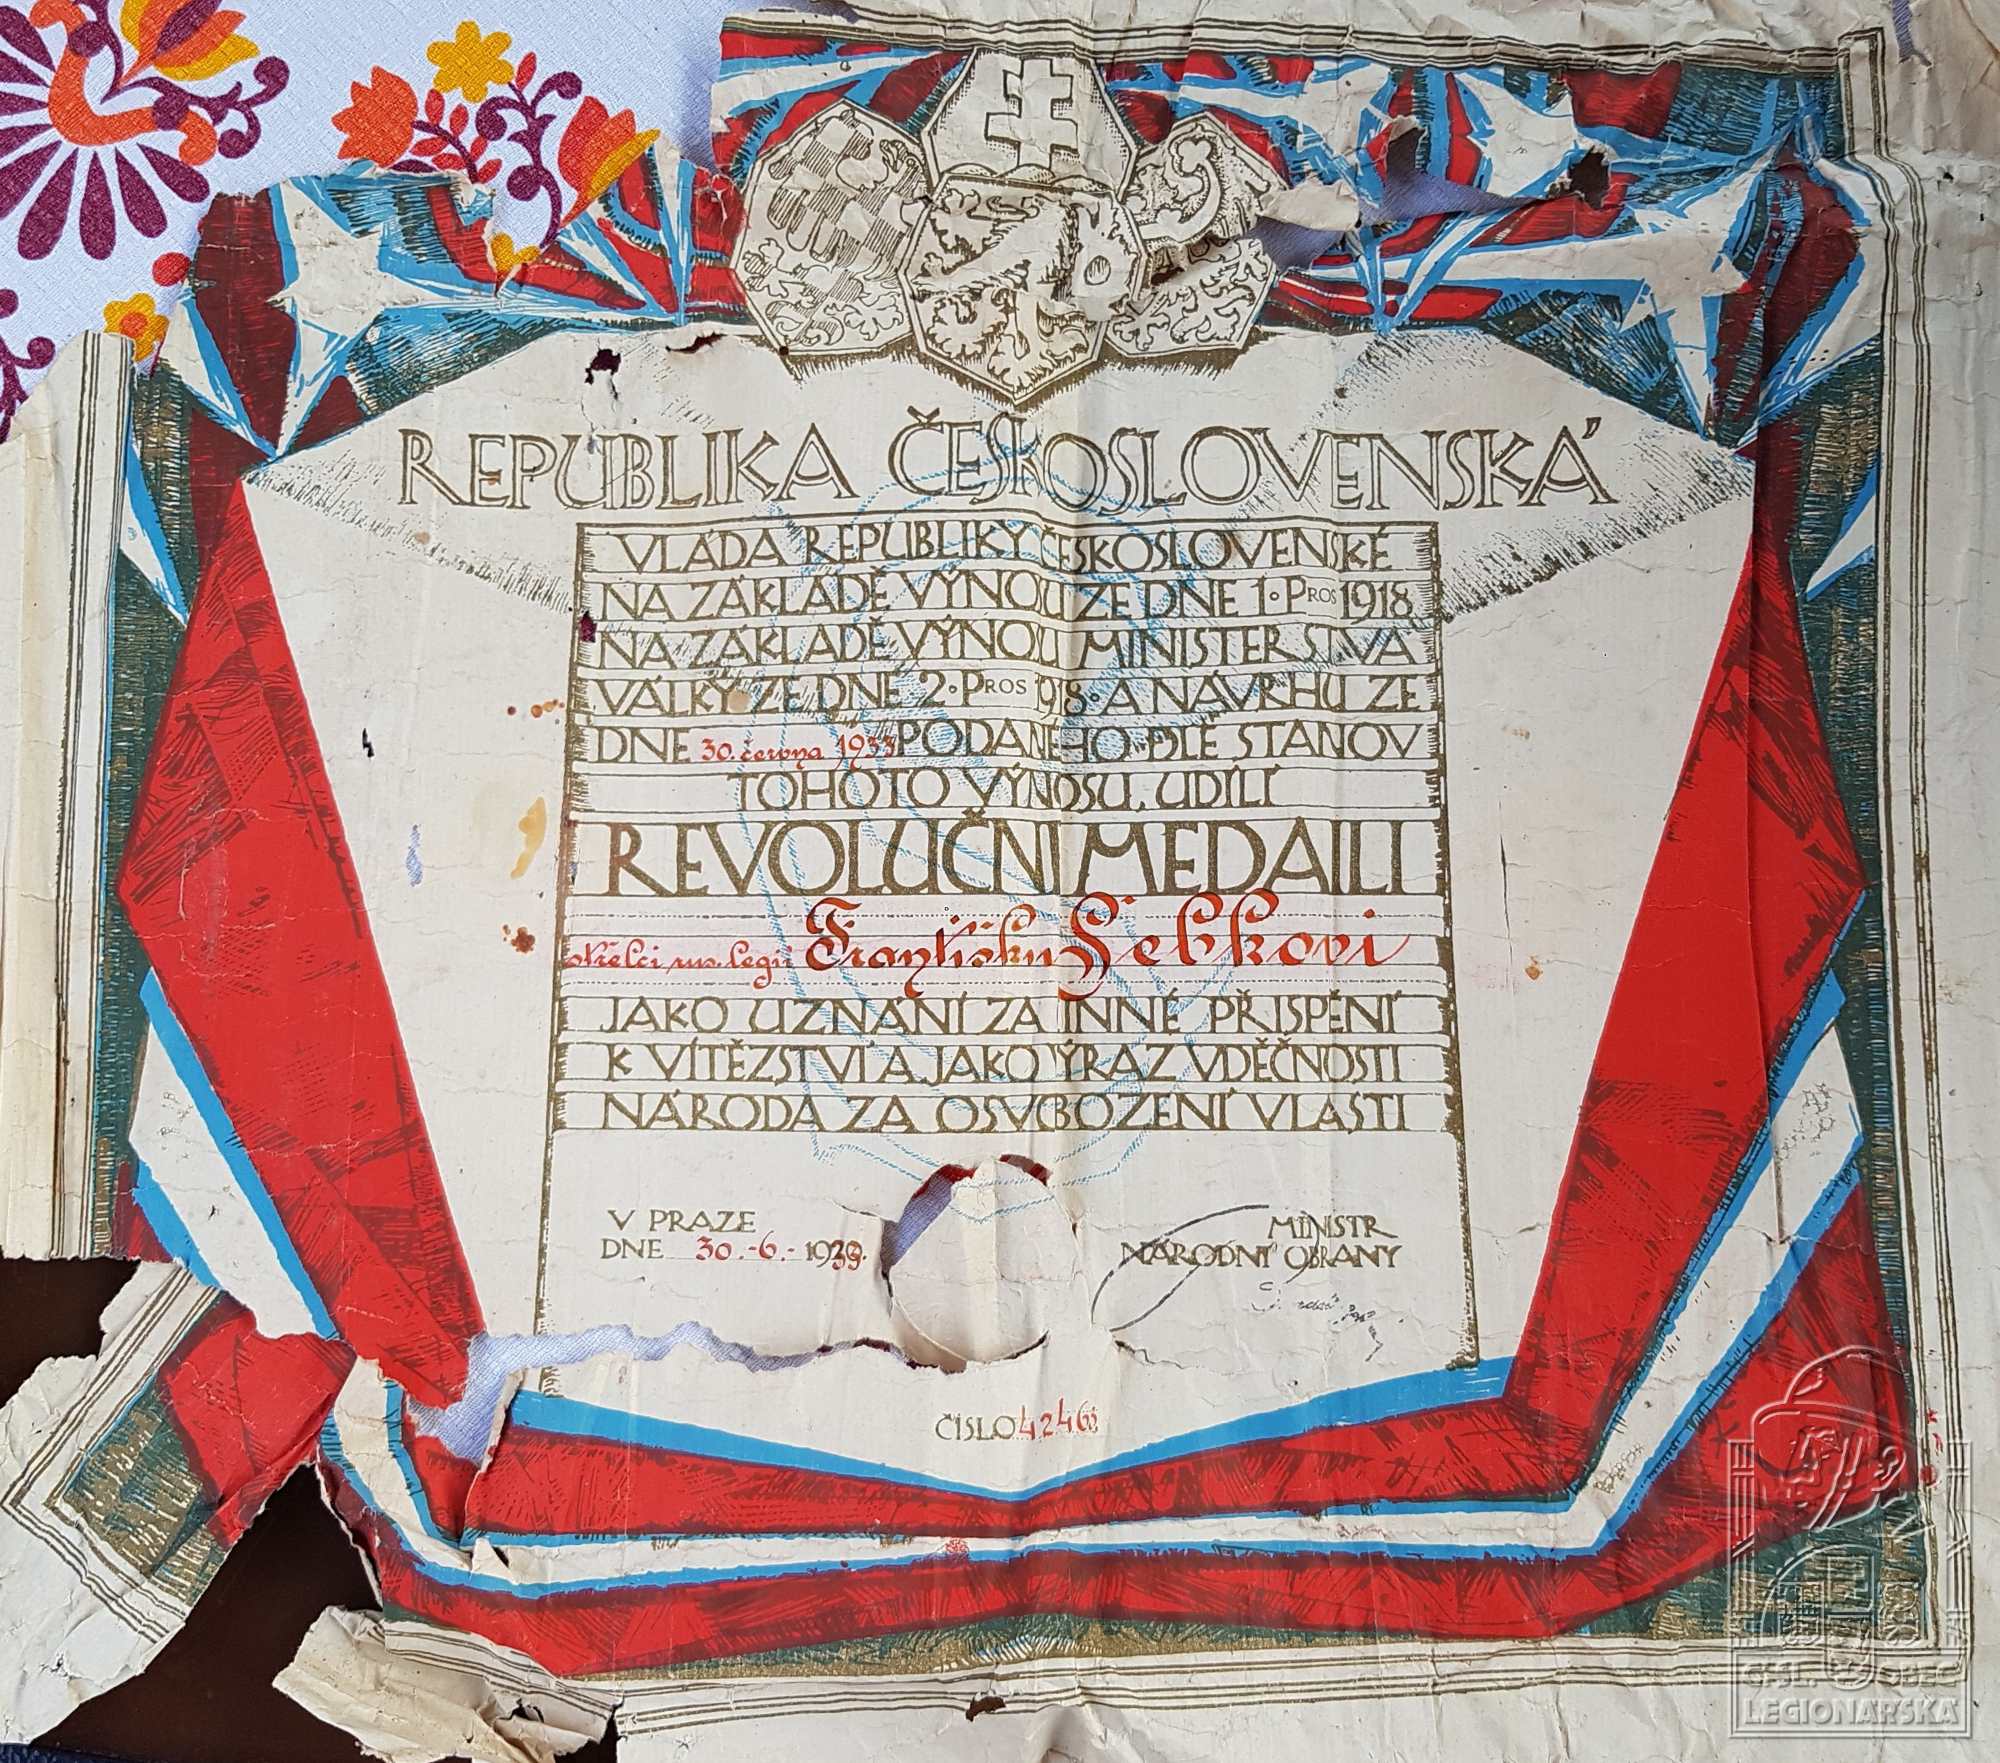 REPUBLIKA ČESKOSLOVENSKÁ
VLÁDA REPUBLIKY ČESKOSLOVENSKÉ
NA ZÁKLADĚ VÝNOSU ZE DNE 1. PROS 1918
NA ZÁKLADĚ VÝNOSU MINISTERSTVA
VÁLKY ZE DNE 2. PROS 1918. A NÁVRHU ZE
DNE 30. června 1933 PODANÉHO DLE STANOV
TOHOTO VÝNOSU, UDÍLÍ
REVOLUČNÍ MEDAILI
střelci rus. legií Františku
JAKO UZNÁNÍ ZA INNÉ PŘISPĚNÍ
K VÍTĚZSTVÍ A JAKO VÝRAZ VDĚČNOSTI
NÁRODA ZA OSVOBOZENÍ VLASTI
V PRAZE
DNE 30.-6.-1933.
MINISTR
NÁRODNÍ OBRANY
ČÍSLO
Č:SL. OBEC
LEGIONÁŘSKÁ